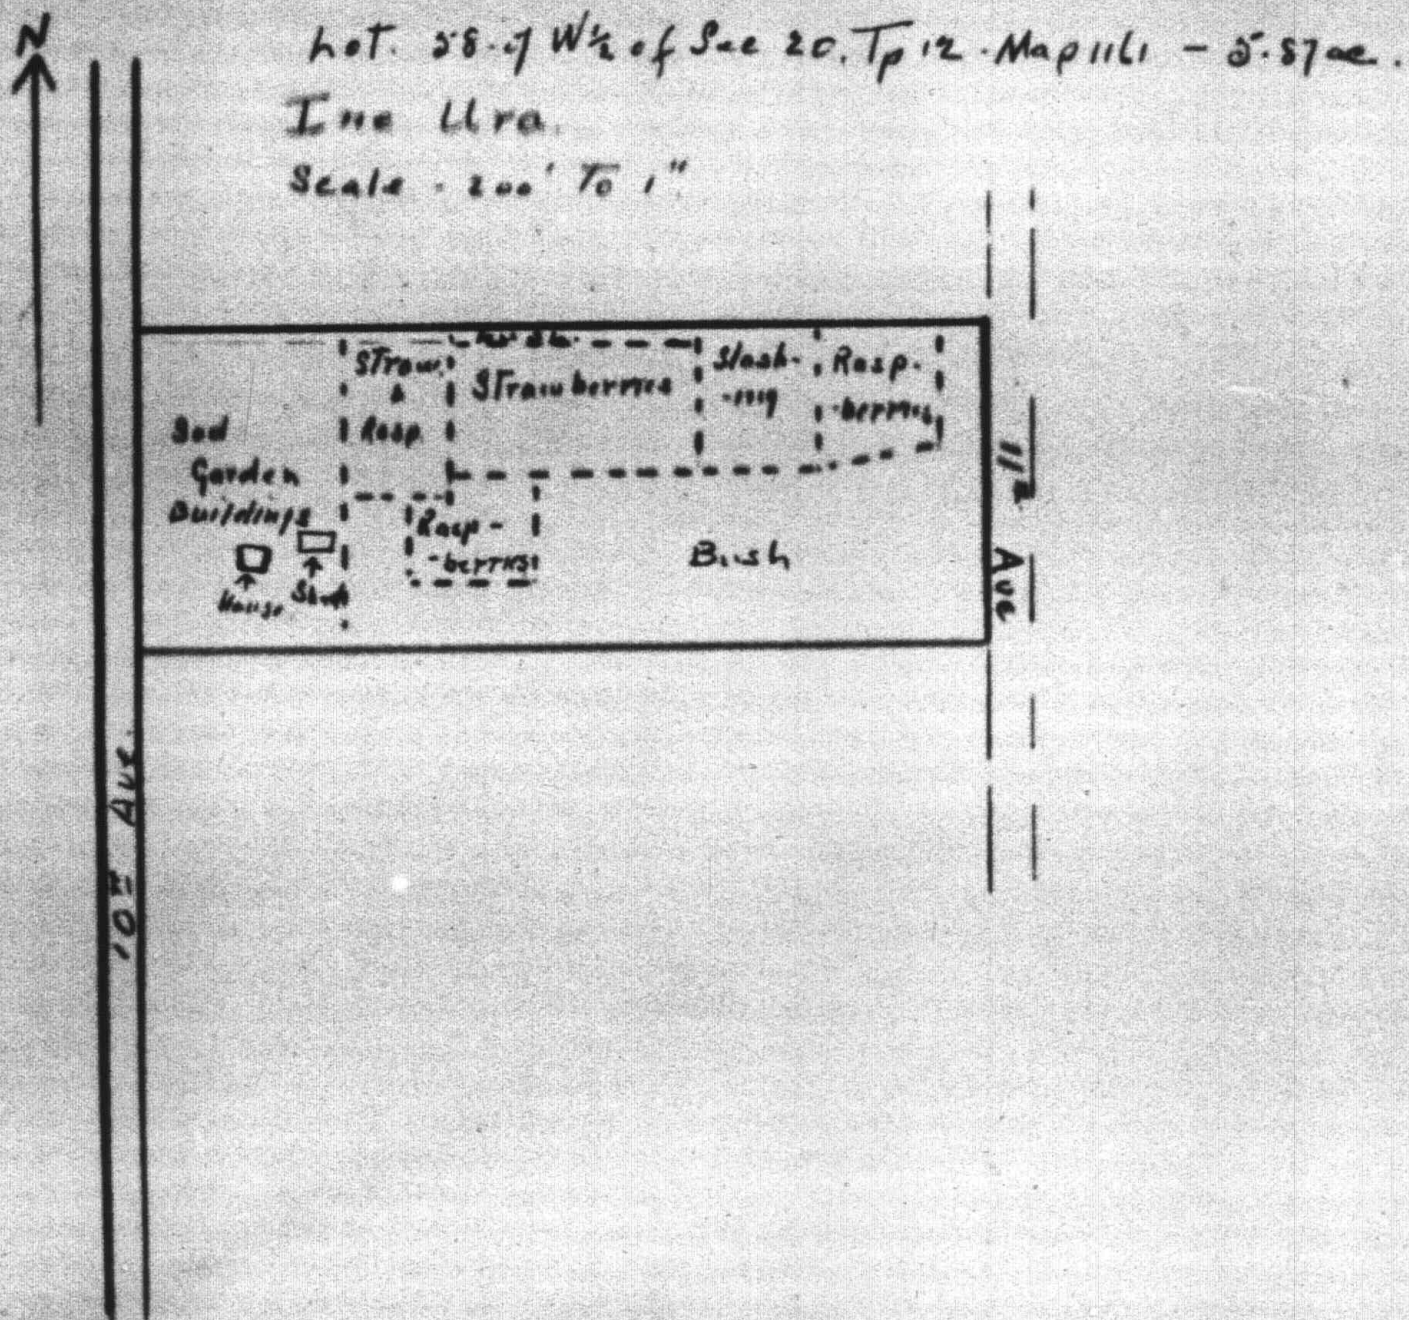 N
Lot. 58. of W½ of Sec 20. Tp 12. Map 1161 - 5.87 ac.
Ine Ura.
Scale - 200' To 1"
Straw.
&
Rasp.
Strawberries
Slash-
-ing
Rasp.
-berries
Sod
Garden
Buildings
House
Shed
Rasp-
-berries
Bush
11th Ave
10th Ave.